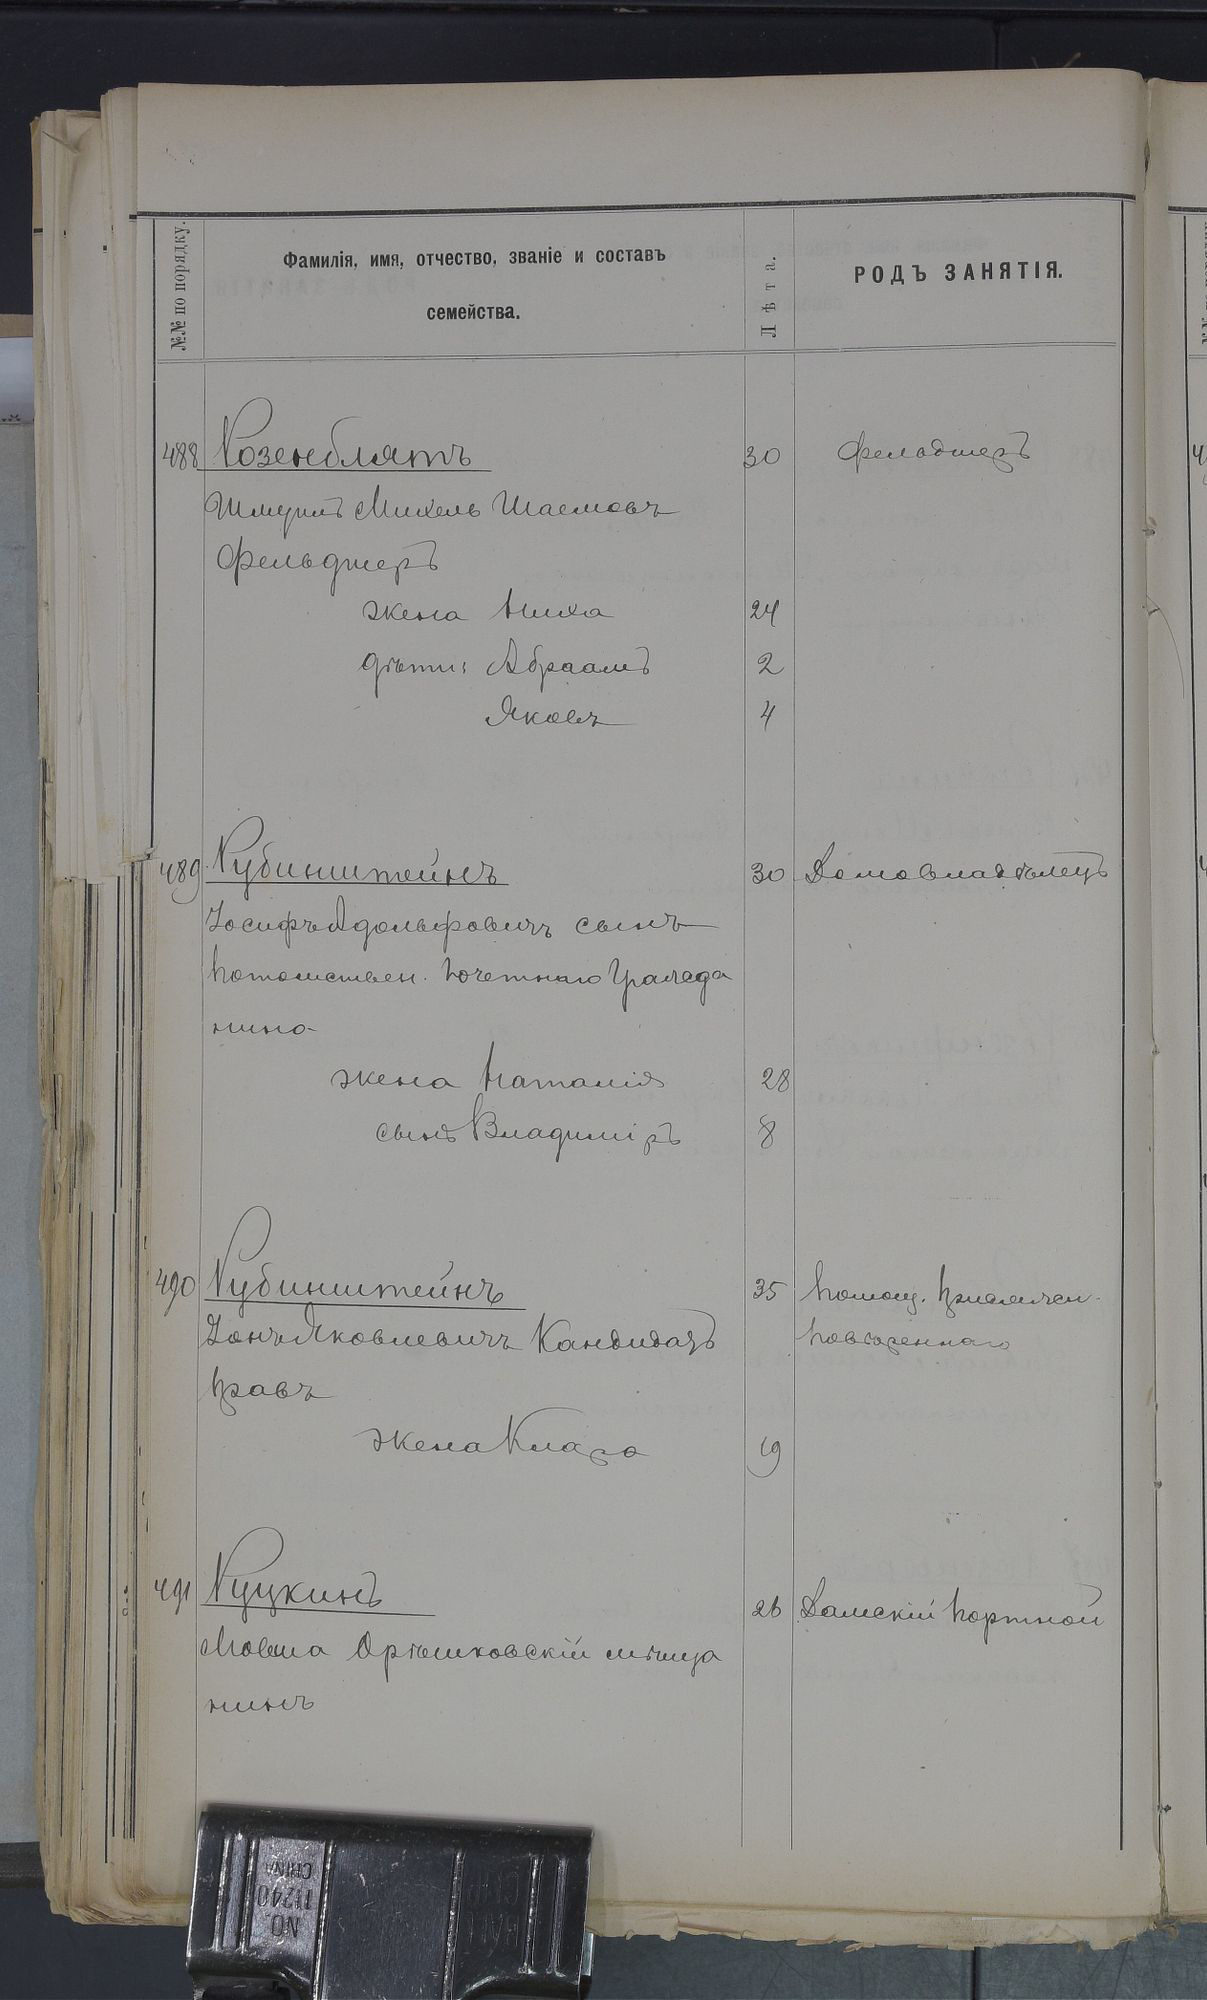 №№ по порядку.
Фамилія, имя, отчество, званіе и составъ
семейства.
Лѣта.
РОДЪ ЗАНЯТІЯ.
488 Розенблятъ 30 фельдшеръ
Шмуилъ Михель Шаемовъ
Фельдшеръ
жена Ниха 24
дѣти: Абраамъ 2
Яковъ 4
489 Рубинштейнъ 30 Домовладѣлецъ
Іосифъ Адольфовичъ сынъ
потомствен. почетнаго гражда
нина
жена Наталія 28
сынъ Владиміръ 8
490 Рубинштейнъ 35 Помощ. присяжен.
повѣреннаго
Іонъ Яковлевичъ Кандидатъ
правъ
жена Клара 19
491 Руцкинъ 26 Дамскій портной
Мовша Орѣшковскій мѣща
нинъ
NO
11240
CHINA